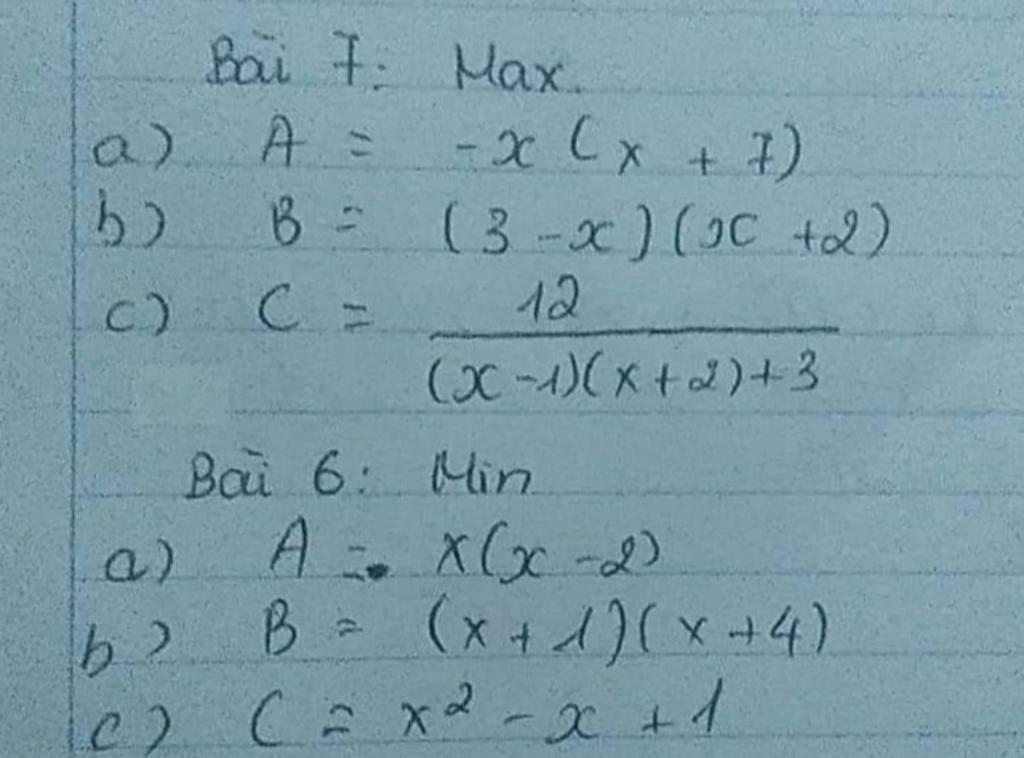 Bài 7: Max.
a) A = -x(x + 7)
b) B = (3 - x)(x + 2)
c) C = 12 / ((x - 1)(x + 2) + 3)
Bài 6: Min
a) A = x(x - 2)
b) B = (x + 1)(x + 4)
c) C = x² - x + 1